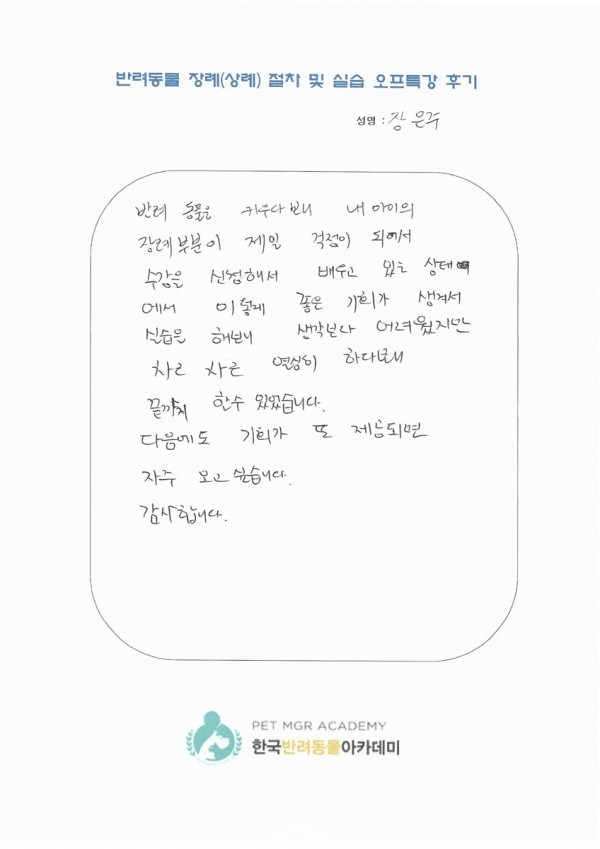 반려동물 장례(상례) 절차 및 실습 오프특강 후기
성명 : 장은주
반려 동물은 키우다보니 내 아이의
장례부분이 제일 걱정이 되어서
수강을 신청해서 배우고 있는 상태
에서 이렇게 좋은 기회가 생겨서
실습은 해보니 생각보다 어려웠지만
차근 차근 열심히 하다보니
끝까지 할수 있었습니다.
다음에도 기회가 또 제공되면
자주 오고 싶습니다.
감사합니다.
PET MGR ACADEMY
한국반려동물아카데미